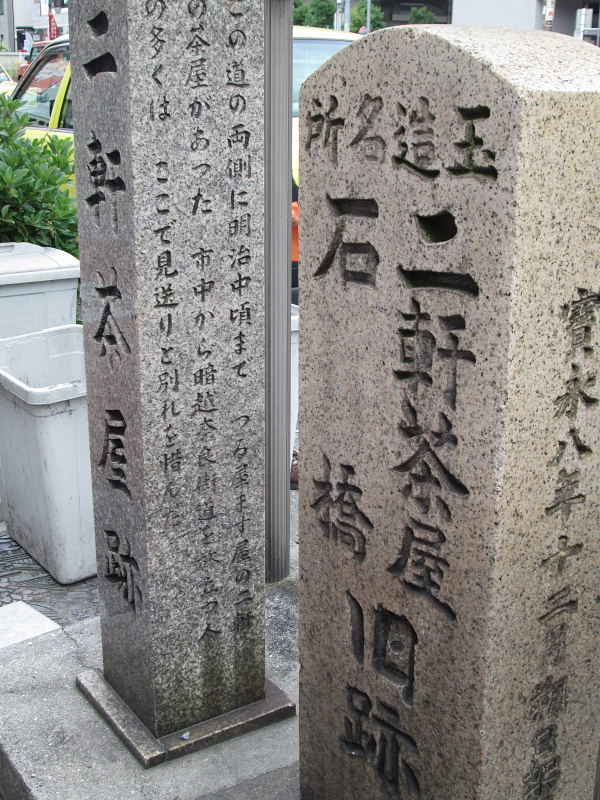 玉造名所
二軒茶屋
石橋
旧跡
寶永八年十二月
二軒茶屋跡
この道の両側に明治中頃まで つる屋ます屋の二軒
の茶屋があった 市中から暗越奈良街道を旅立つ人
の多くは ここで見送りと別れを惜んだ